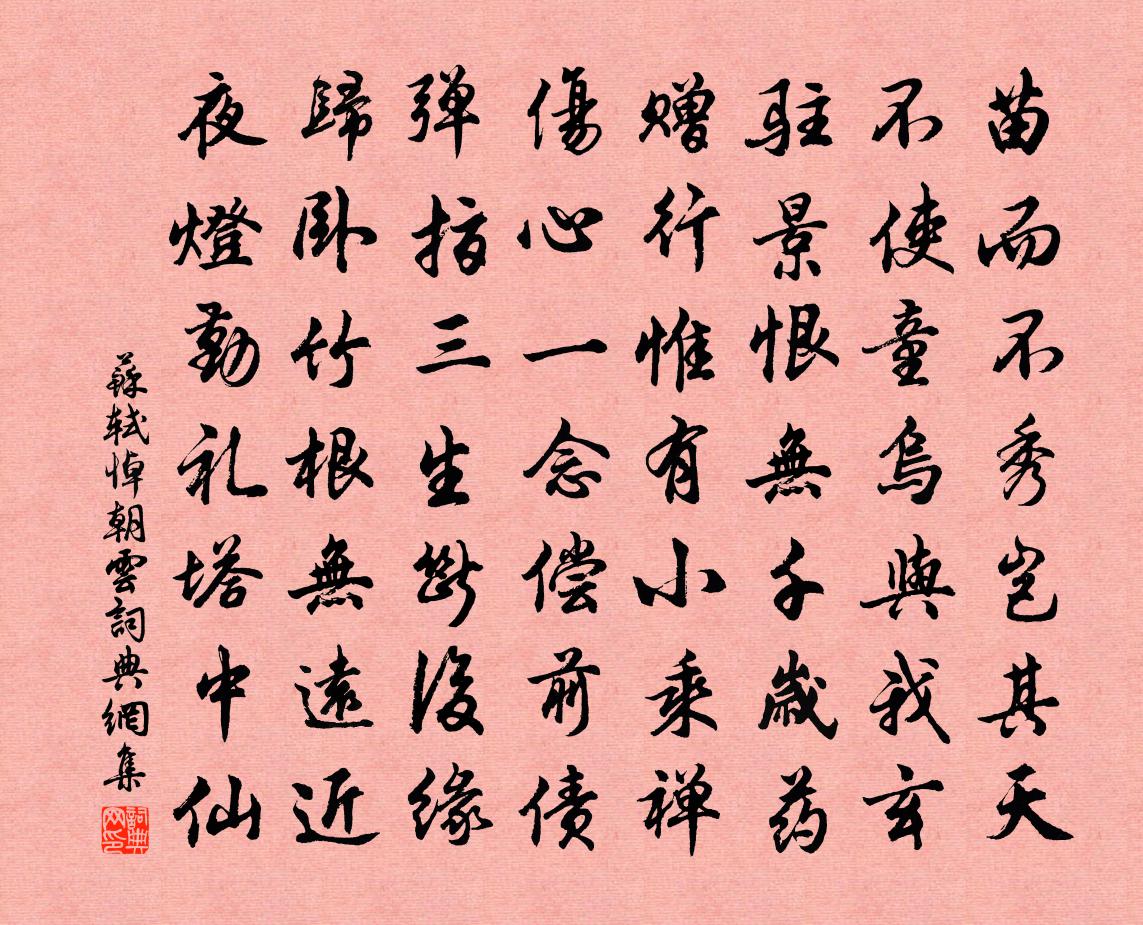 苗而不秀豈其天
不使童烏與我玄
駐景恨無千歲药
赠行惟有小乘禅
傷心一念偿前债
彈指三生斷後缘
歸卧竹根無遠近
夜燈勤礼塔中仙
蘇轼悼朝雲詞典網集
詞典网印